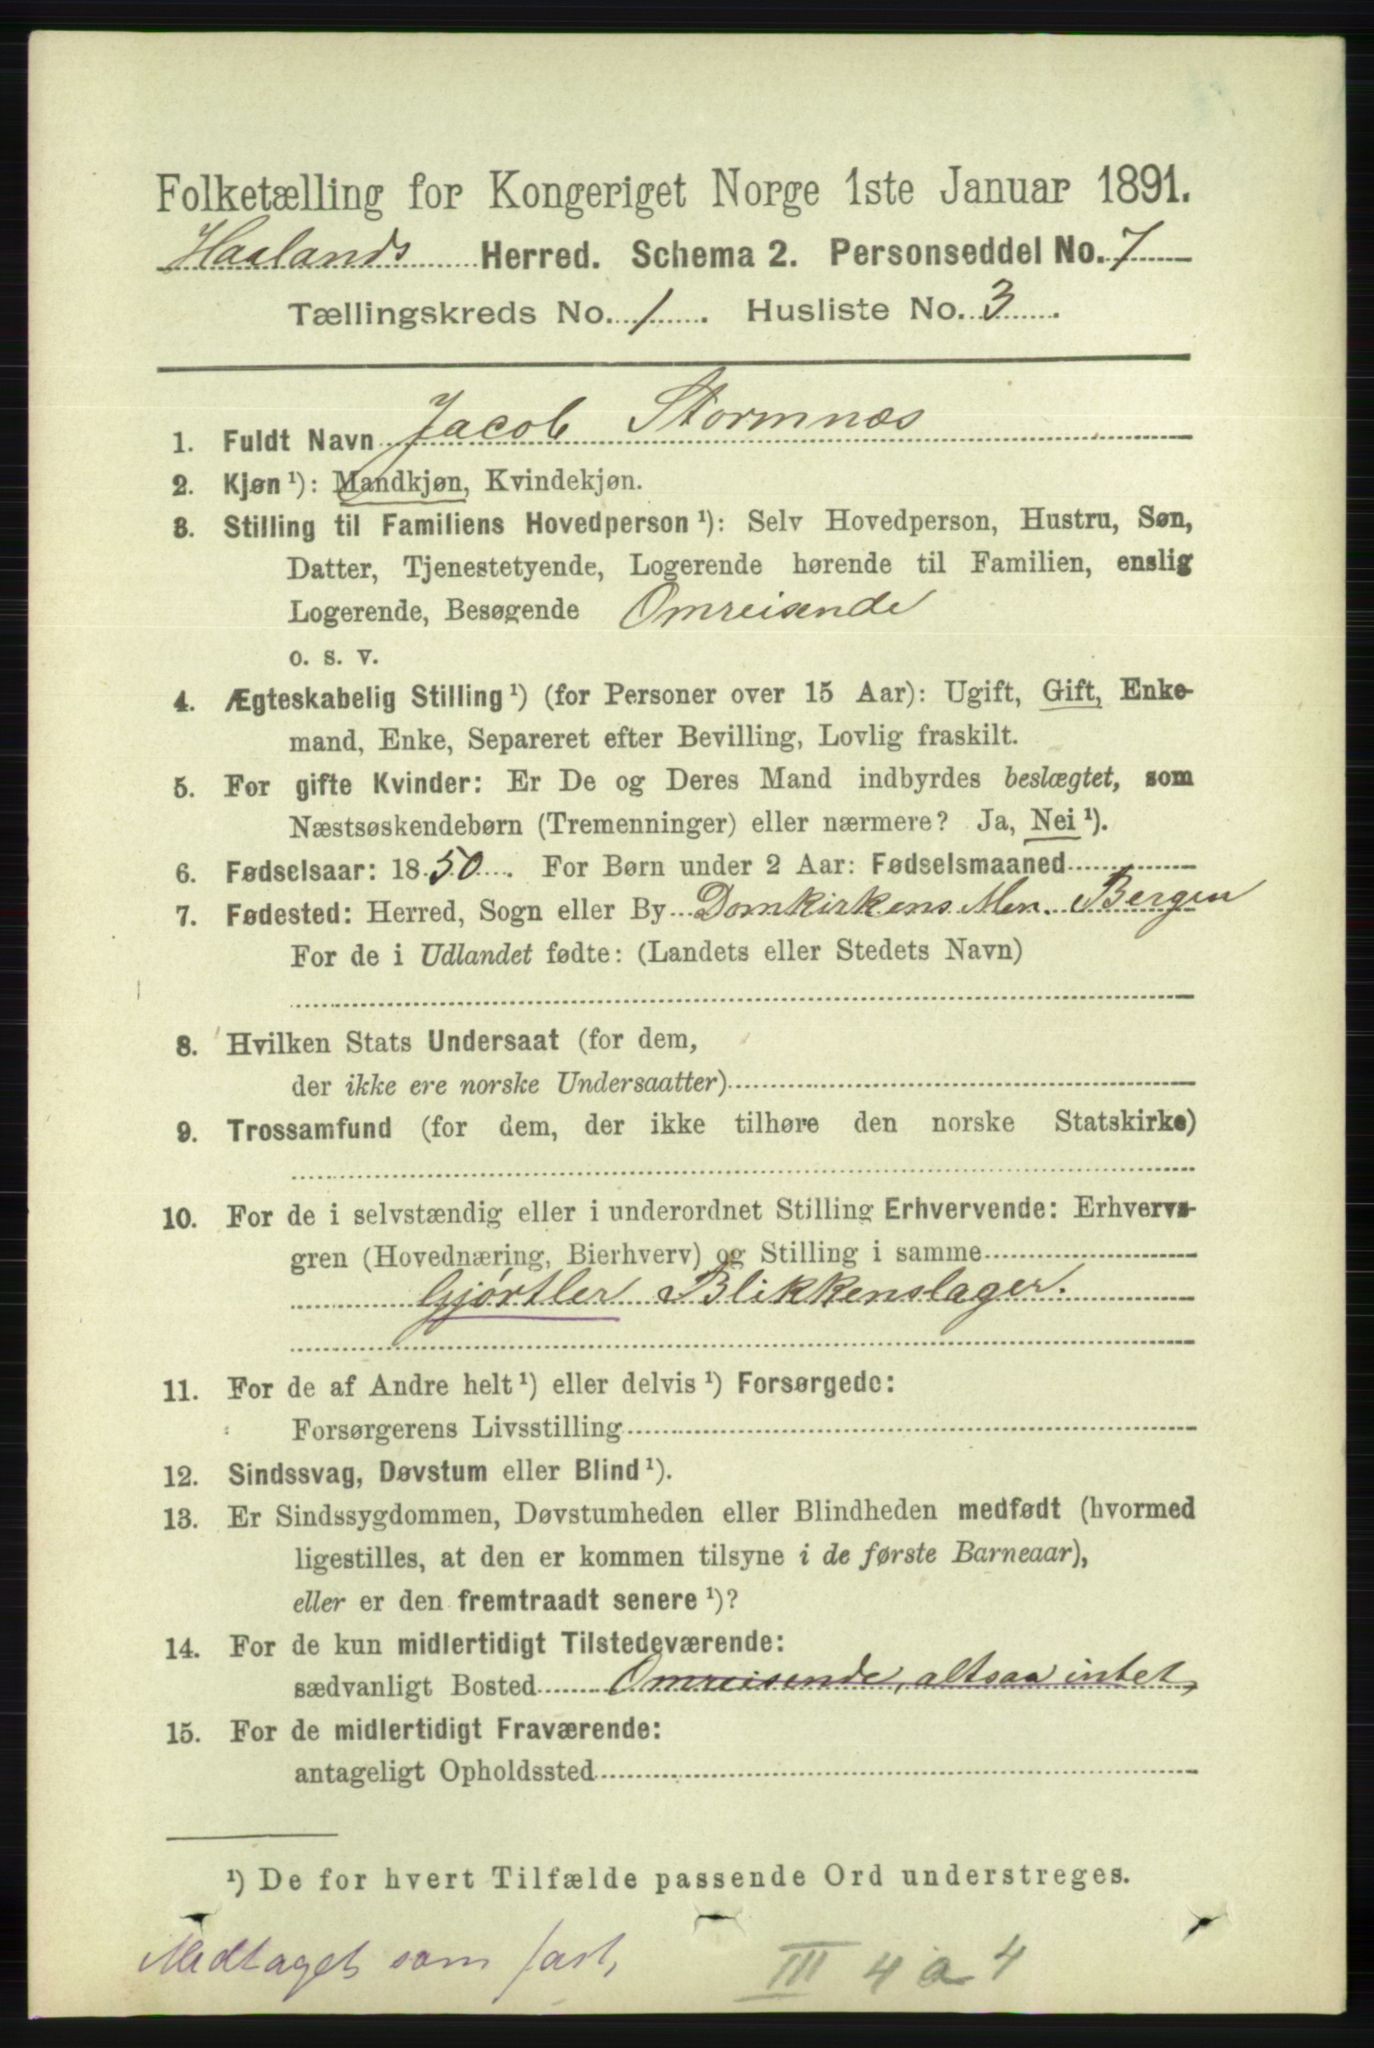 Folketælling for Kongeriget Norge 1ste Januar 1891.
Haalands Herred. Schema 2. Personseddel No. 7
Tællingskreds No. 1. Husliste No. 3.
1. Fuldt Navn Jacob Stormnæs
2. Kjøn ¹): Mandkjøn, Kvindekjøn.
3. Stilling til Familiens Hovedperson ¹): Selv Hovedperson, Hustru, Søn,
Datter, Tjenestetyende, Logerende hørende til Familien, enslig
Logerende, Besøgende Omreisende
o. s. v.
4. Ægteskabelig Stilling ¹) (for Personer over 15 Aar): Ugift, Gift, Enke-
mand, Enke, Separeret efter Bevilling, Lovlig fraskilt.
5. For gifte Kvinder: Er De og Deres Mand indbyrdes beslægtet, som
Næstsøskendebørn (Tremenninger) eller nærmere? Ja, Nei ¹).
6. Fødselsaar: 1850. For Børn under 2 Aar: Fødselsmaaned
7. Fødested: Herred, Sogn eller By Domkirkens Men. Bergen
For de i Udlandet fødte: (Landets eller Stedets Navn)
8. Hvilken Stats Undersaat (for dem,
der ikke ere norske Undersaatter)
9. Trossamfund (for dem, der ikke tilhøre den norske Statskirke)
10. For de i selvstændig eller i underordnet Stilling Erhvervende: Erhvervs-
gren (Hovednæring, Bierhverv) og Stilling i samme
Gjørtler Blikkenslager.
11. For de af Andre helt ¹) eller delvis ¹) Forsørgede:
Forsørgerens Livsstilling
12. Sindssvag, Døvstum eller Blind ¹).
13. Er Sindssygdommen, Døvstumheden eller Blindheden medfødt (hvormed
ligestilles, at den er kommen tilsyne i de første Barneaar),
eller er den fremtraadt senere ¹)?
14. For de kun midlertidigt Tilstedeværende:
sædvanligt Bosted Omreisende, altsaa intet,
15. For de midlertidigt Fraværende:
antageligt Opholdssted
¹) De for hvert Tilfælde passende Ord understreges.
Medtaget som fast,
III 4 a 4